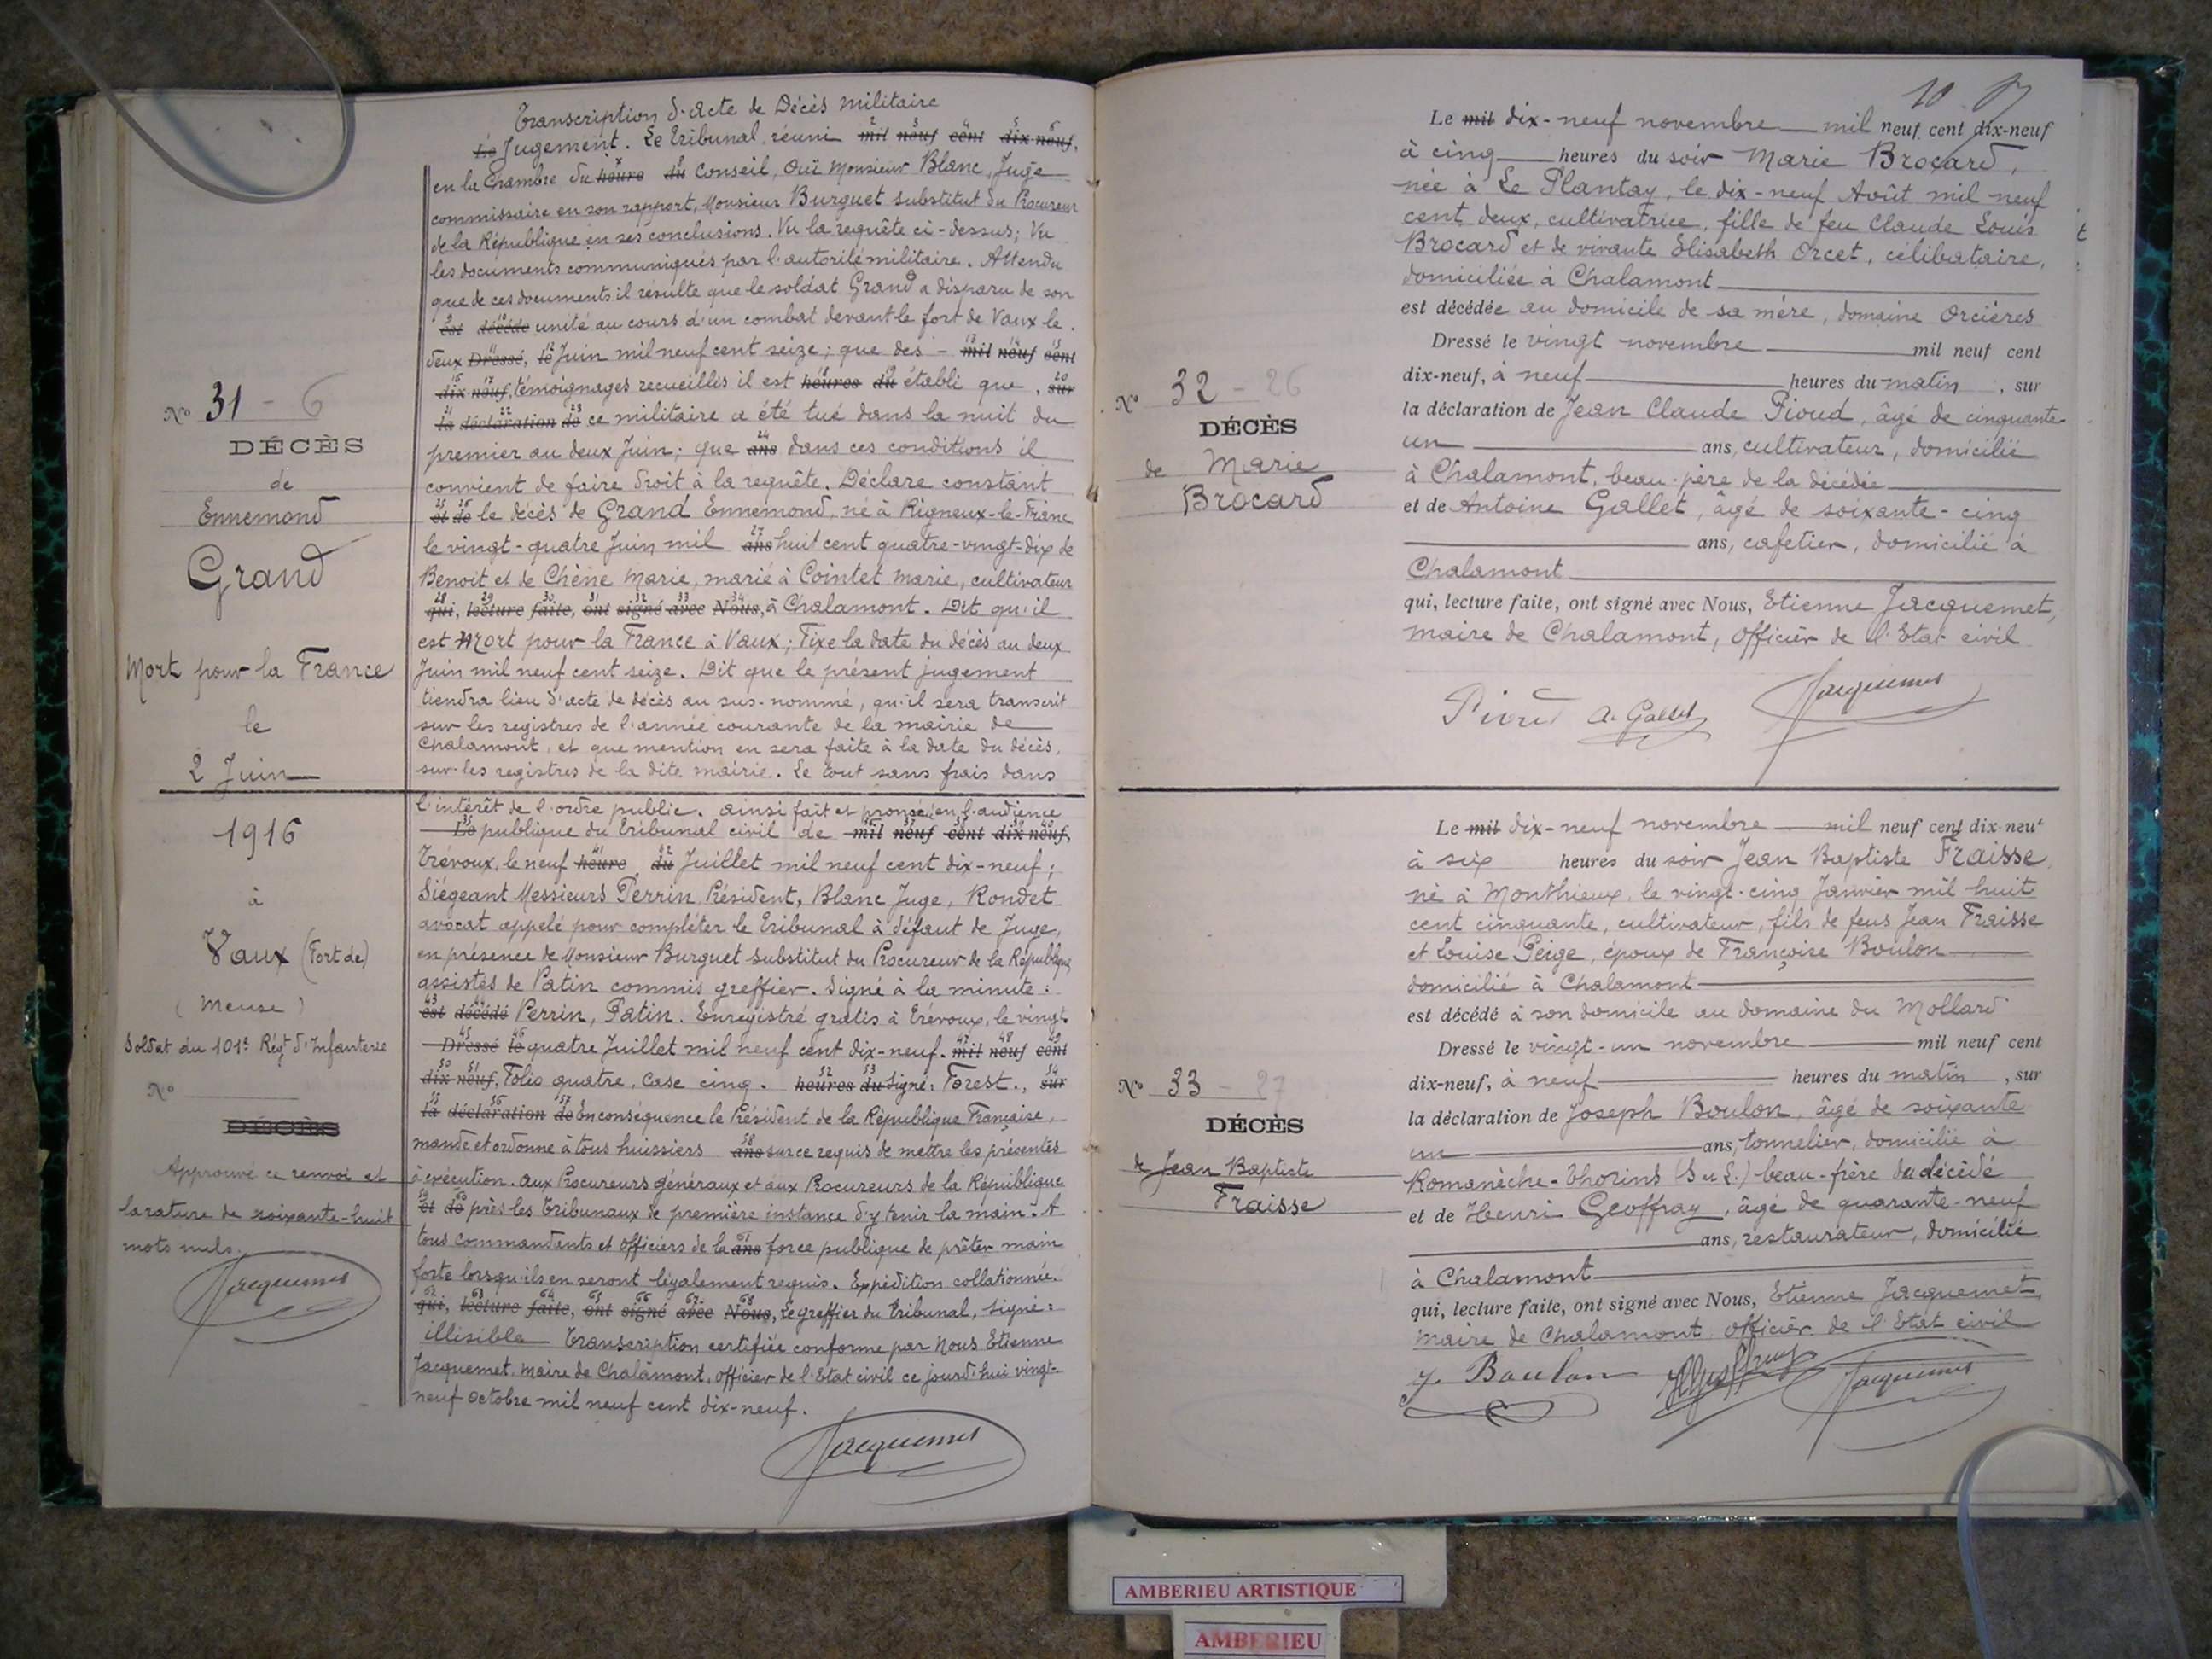 Transcription d'Acte de Décès Militaire
Le Jugement. Le Tribunal, réuni mil neuf cent dix-neuf,
en la Chambre du heure du Conseil, Ouï Monsieur Blanc, Juge
commissaire en son rapport, Monsieur Burguet substitut du Procureur
de la République en ses conclusions. Vu la requête ci-dessus; Vu
les documents communiqués par l'autorité militaire. Attendu
que de ces documents il résulte que le soldat Grand a disparu de son
est décédé unité au cours d'un combat devant le fort de Vaux le
deux Dressé, le Juin mil neuf cent seize; que des - mil neuf cent
dix neuf, témoignages recueillis il est heures du établi que, sur
la déclaration de ce militaire a été tué dans la nuit du
premier au deux Juin; que ans dans ces conditions il
convient de faire droit à la requête. Déclare constant
et de le décès de Grand Ennemond, né à Rigneux-le-Franc
le vingt-quatre Juin mil ans huit cent quatre-vingt-dix de
Benoit et de Chêne Marie, marié à Cointet Marie, cultivateur
qui, lecture faite, ont signé avec Nous, à Chalamont. Dit qu'il
est Mort pour la France à Vaux; Fixe la date du décès au deux
Juin mil neuf cent seize. Dit que le présent jugement
tiendra lieu d'acte de décès au sus-nommé, qu'il sera transcrit
sur les registres de l'année courante de la mairie de
Chalamont, et que mention en sera faite à la date du décès,
sur les registres de la dite mairie. Le tout sans frais dans
l'intérêt de l'ordre public. Ainsi fait et prononcé en l'audience
Le publique du Tribunal civil de mil neuf cent dix neuf,
Trévoux, le neuf heure, du Juillet mil neuf cent dix-neuf;
Siégeant Messieurs Perrin, Président, Blanc Juge, Rondet
avocat appelé pour compléter le Tribunal à défaut de Juge,
en présence de Monsieur Burguet substitut du Procureur de la République
assistés de Patin commis greffier. Signé à la minute:
est décédé Perrin, Patin. Enregistré gratis à Trévoux, le vingt
Dressé le quatre Juillet mil neuf cent dix-neuf. mil neuf cent
dix neuf, Folio quatre, Case cinq. heures du Signé: Forest., sur
la déclaration de En conséquence le Président de la République Française,
mande et ordonne à tous huissiers ans sur ce requis de mettre les présentes
à exécution. aux Procureurs généraux et aux Procureurs de la République
et de près les Tribunaux de première instance d'y tenir la main. A
tous commandants et officiers de la ans force publique de prêter main
forte lorsqu'ils en seront légalement requis. Expédition collationnée.
qui, lecture faite, ont signé avec Nous, Le greffier du Tribunal, signé:
illisible Transcription certifiée conforme par Nous Etienne
Jacquemet, maire de Chalamont, officier de l'Etat civil ce jourd'hui vingt-
neuf Octobre mil neuf cent dix-neuf.
Jacquemet
No 31 - 6
DÉCÈS
de
Ennemond
Grand
Mort pour la France
le
2 Juin
1916
à
Vaux (Fort de)
(Meuse)
Soldat du 101e Régt d'Infanterie
No
DÉCÈS
Approuvé ce renvoi et
la rature de soixante-huit
mots nuls.
Jacquemet
10
Le mil dix-neuf novembre mil neuf cent dix-neuf
à cinq heures du soir Marie Brocard,
née à Le Plantay, le dix-neuf Août mil neuf
cent deux, cultivatrice, fille de feu Claude Louis
Brocard et de vivante Elisabeth Orcet, célibataire,
domiciliée à Chalamont
est décédée au domicile de sa mère, domaine Orcières
Dressé le vingt novembre mil neuf cent
dix-neuf, à neuf heures du matin, sur
la déclaration de Jean Claude Pioud, âgé de cinquante
un ans, cultivateur, domicilié
à Chalamont, beau-père de la décédée
et de Antoine Gallet, âgé de soixante-cinq
ans, cafetier, domicilié à
Chalamont
qui, lecture faite, ont signé avec Nous, Etienne Jacquemet,
maire de Chalamont, Officier de l'Etat civil
Pioud A. Gallet Jacquemet
No 32 - 26
DÉCÈS
de Marie
Brocard
Le mil dix-neuf novembre mil neuf cent dix-neuf
à six heures du soir Jean Baptiste Fraisse,
né à Monthieux, le vingt-cinq Janvier mil huit
cent cinquante, cultivateur, fils de feus Jean Fraisse
et Louise Peige, époux de Françoise Boulon
domicilié à Chalamont
est décédé à son domicile au domaine du Mollard
Dressé le vingt-un novembre mil neuf cent
dix-neuf, à neuf heures du matin, sur
la déclaration de Joseph Boulon, âgé de soixante
un ans, tonnelier, domicilié à
Romanèche-Thorins (S et L.) beau-frère du décédé
et de Henri Geoffray, âgé de quarante-neuf
ans, restaurateur, domicilié
à Chalamont
qui, lecture faite, ont signé avec Nous, Etienne Jacquemet,
maire de Chalamont officier de l'Etat civil
J. Boulon Jacquemet
No 33 - 27
DÉCÈS
de Jean Baptiste
Fraisse
AMBERIEU ARTISTIQUE
AMBERIEU